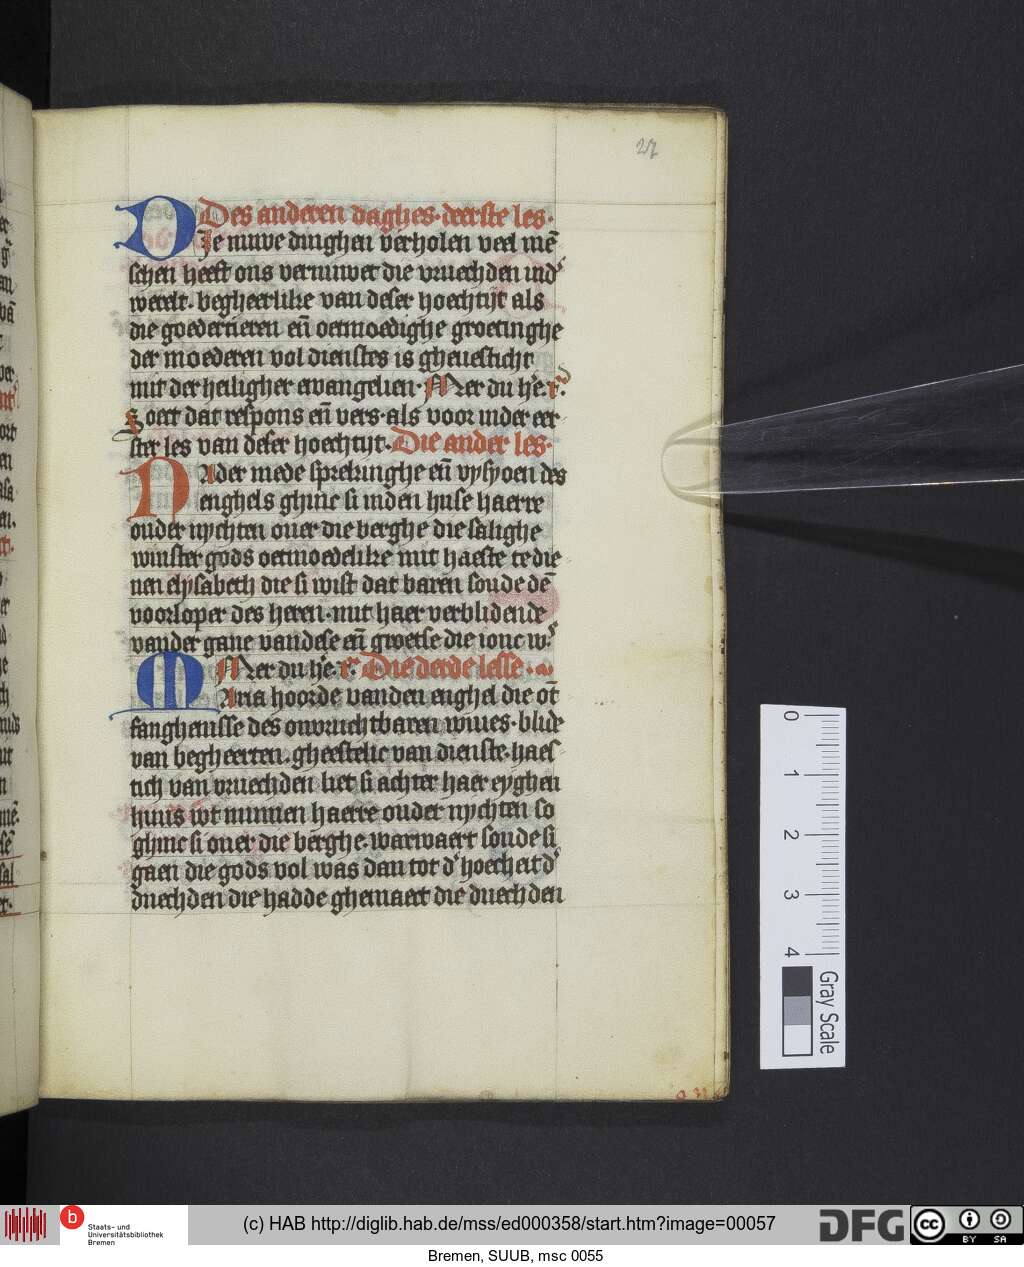 27
Des anderen daghes. deerste les.
Die nuwe dinghen verholen veel mē
schen heeft ons vernuwet die vruechden ind'
werelt. begheerlike van deser hoechtijt als
die goedertieren eñ oetmoedighe groetinghe
der moederen vol dienstes is ghevesticht
mit der heiligher ewangelien. Mer du he. r.
Soect dat respons eñ vers. als voor inder eer
ster les van deser hoechtijt. Die ander les.
Nader mede sprekinghe eñ vysyoen des
enghels ghinc si inden huse haerre
ouder nychten over die berghe die salighe
winster gods oetmoedelike mit haeste te die
nen elysabeth die si wist dat baren soude dē
voorloper des heren. mit haer verblidende
vander gane van dese eñ groetse die ionc w'
Mer du he. r. Die derde lesse.
Maria hoorde vanden enghel die ot
fanghenisse des onvruchtbaren wives. blide
van begheerten. gheestelic van dienste. haes
tich van vruechden liet si achter haer eyghen
huus wt minnen haerre ouder nychten so
ghinc si over die berghe. warwaert soude si
gaen die gods vol was dan tot d' hoecheit d'
duechden die hadde ghemaect die duechden
0
1
2
3
4
Gray Scale
b
Staats- und
Universitätsbibliothek
Bremen
(c) HAB http://diglib.hab.de/mss/ed000358/start.htm?image=00057
DFG
cc
BY SA
Bremen, SUUB, msc 0055